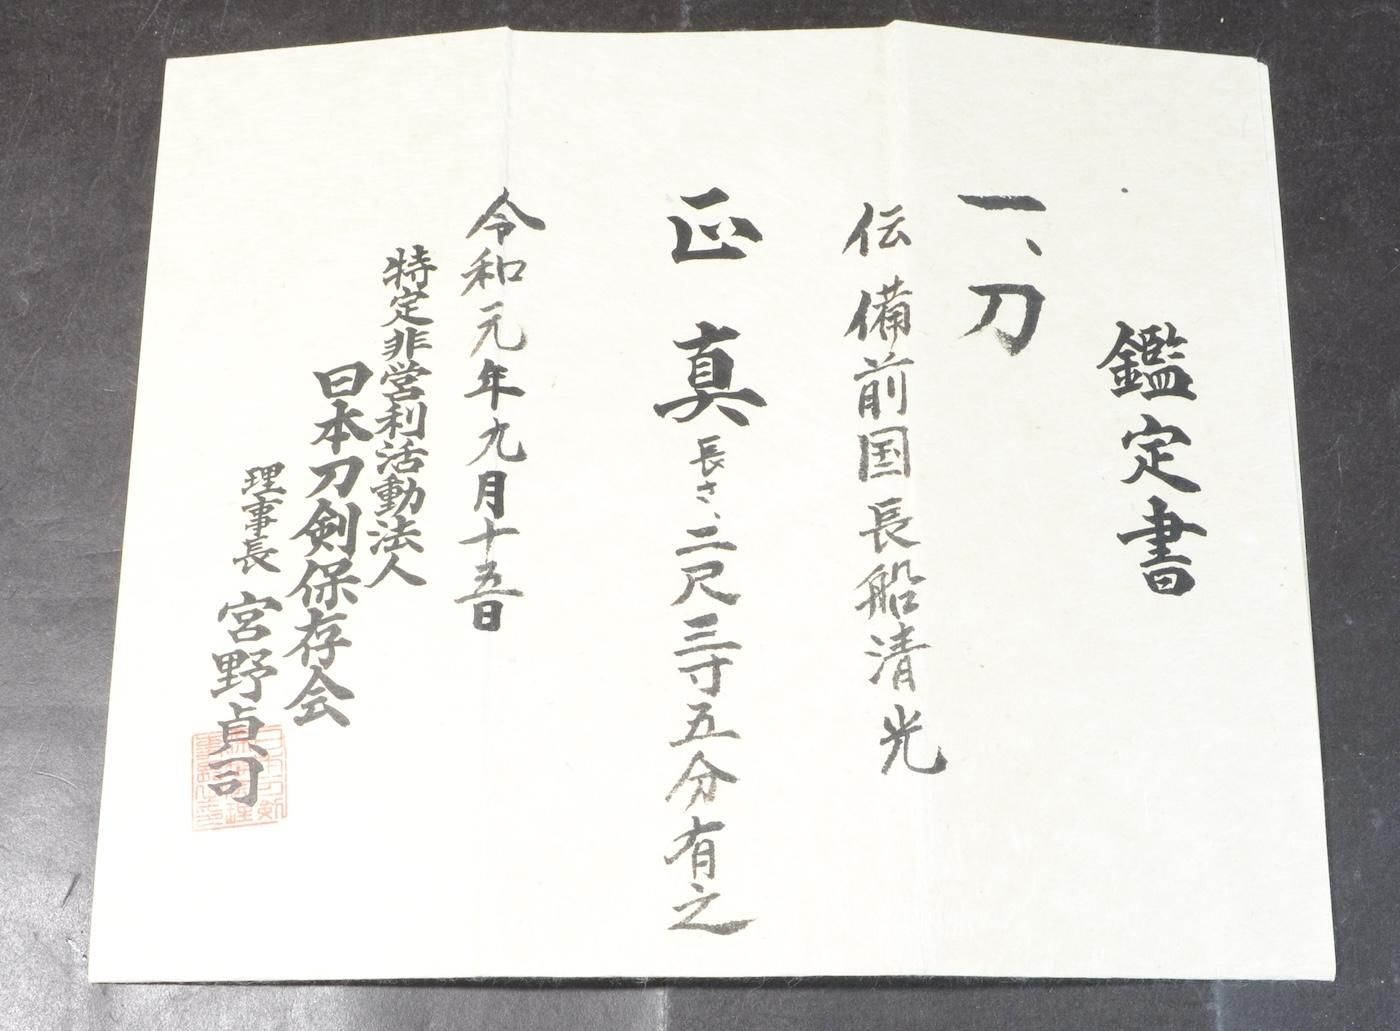 鑑定書
一、刀
伝 備前国長船清光
正真 長さ、二尺三寸五分有之
令和元年九月十五日
特定非営利活動法人
日本刀剣保存会
理事長 宮野貞司